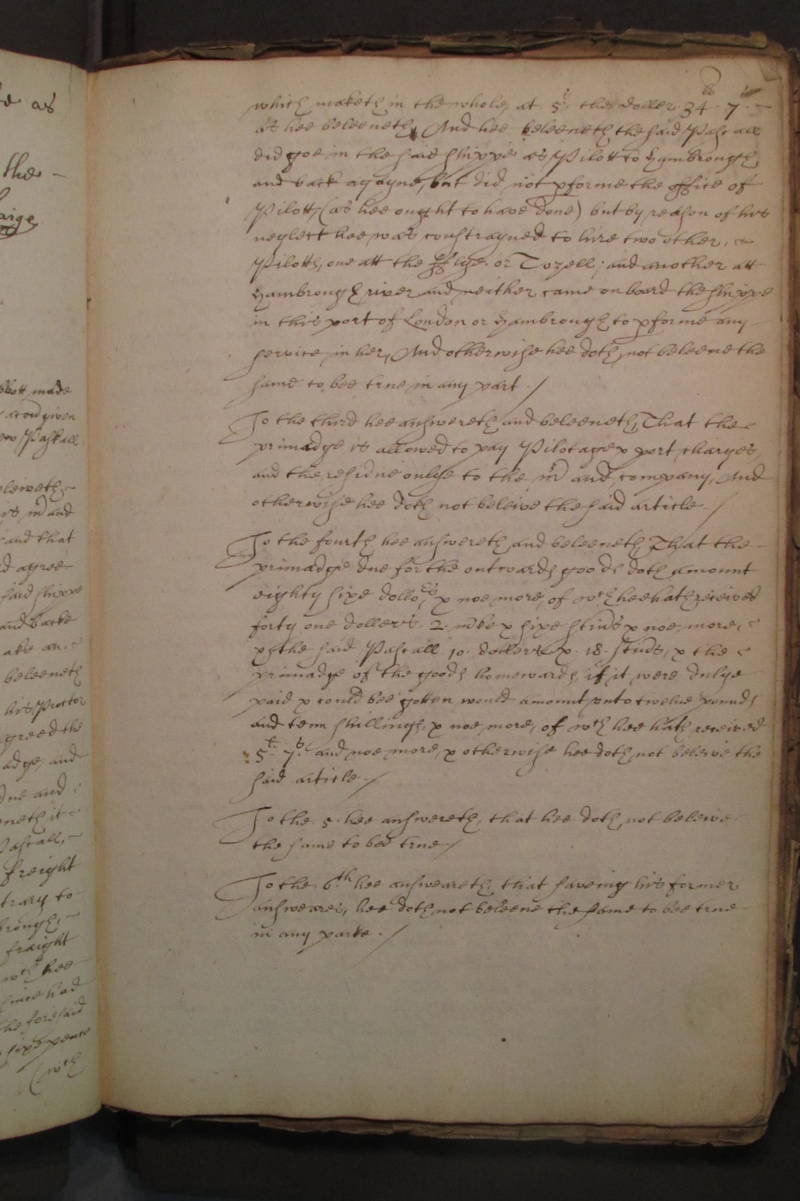 which maketh in the whole, at 5s. the doller 34li. 7s.
As hee beleeveth, And hee beleeveth the said Pascall
did goe in the said shippe as Pilott to Hambrough,
and back agayne, but did not pforme the office of
Pilott (as hee ought to have done) but by reason of his
neglect hee was constrayned to hire two other,
Pilotts, one att the or Texell; and another att
Hambrough river and neither came on board the shippe
in this port of London or Hambrough to pforme any
service in her, And otherwise hee doth not beleeve the
same to bee true in any part.
To the third hee answereth and beleeveth, That the
primadge is allowed to pay Pilotage & port charges,
and the residue onlye to the mr and company, And
otherwise hee doth not beleive the said article
To the fourth hee answereth and beleeveth, That the
primadge due for the outwards goods doth amount
eighty sixe dollors & noe more, of wch hee hath received
forty one dollers. 2. & sixe stivs & noe more,
& the said Pascall 10. dollors & 18. stivs, & the
primadge of the goods homewards, if it were dulye
paid & could bee gotten would amount unto twelve pounds
and tenn shillings, & noe more, of wch hee hath received
5li. 7s. and noe more, & otherwise hee doth not beleive the
said article
To the 5. hee answereth, that hee doth not beleive
the same to bee true
To the 6th hee answeareth, that saveing his former
answeares, hee doth not beleeve the same to bee true
in any parte.
e as
the
aige
bott made
acord given
Pascall
beleiveth
mr and
and that
d agree
said shippe
and backe
beleeveth
his Proctor
greed the
adge, and
due and
neth it
Pascall,
freight
trary to
brough,
fraight
wch hee
since had
the foresaid
sixe pence
(wch